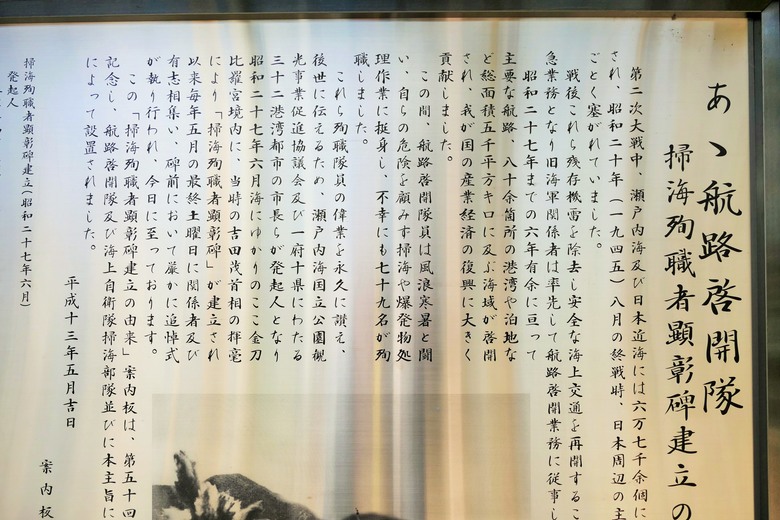 あゝ航路啓開隊
掃海殉職者顕彰碑建立の
第二次大戦中、瀬戸内海及び日本近海には六万七千余個に
され、昭和二十年（一九四五）八月の終戦時、日本周辺の主
ごとく塞がれていました。
戦後これら残存機雷を除去し安全な海上交通を再開するこ
急業務となり旧海軍関係者は率先して航路啓開業務に従事し
昭和二十七年までの六年有余に亘って
主要な航路、八十余箇所の港湾や泊地な
ど総面積五千平方キロに及ぶ海域が啓開
され、我が国の産業経済の復興に大きく
貢献しました。
この間、航路啓開隊員は風浪寒暑と闘
い、自らの危険を顧みず掃海や爆発物処
理作業に挺身し、不幸にも七十九名が殉
職しました。
これら殉職隊員の偉業を永久に讃え、
後世に伝えるため、瀬戸内海国立公園観
光事業促進協議会及び一府十県にわたる
三十二港湾都市の市長らが発起人となり
昭和二十七年六月海にゆかりのここ金刀
比羅宮境内に、当時の吉田茂首相の揮毫
により「掃海殉職者顕彰碑」が建立され
以来毎年五月の最終土曜日に関係者及び
有志相集い、碑前において厳かに追悼式
が執り行われ、今日に至っております。
この「掃海殉職者顕彰碑建立の由来」案内板は、第五十回
記念し、航路啓開隊及び海上自衛隊掃海部隊並びに本主旨に
によって設置されました。
平成十三年五月吉日
案内板
掃海殉職者顕彰碑建立（昭和二十七年六月）
発起人